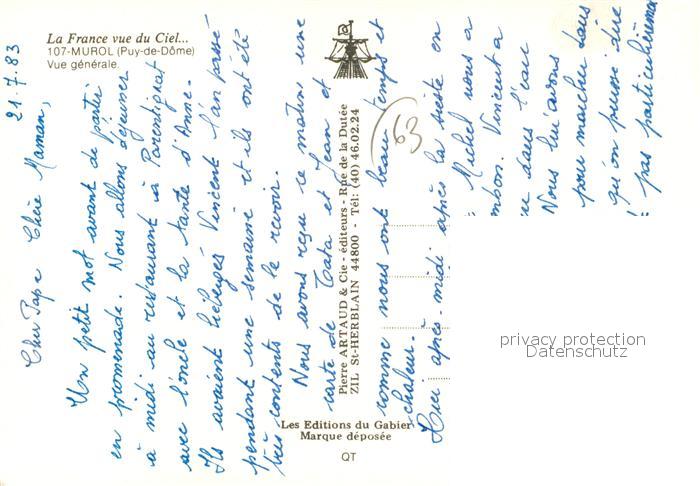 La France vue du Ciel...
107-MUROL (Puy-de-Dôme)
Vue générale.
21.7.83
Cher Papa Chère Maman,
Un petit mot avant de partir
en promenade. Nous allons déjeuner
à midi au restaurant à Parentignat
avec l'oncle et la tante d'Anne.
Ils avaient hébergé Vincent l'an passé
pendant une semaine et ils ont été
très contents de le revoir.
Nous avons reçu ce matin une
carte de Tata et Jean et
comme nous ont beau temps et
chaleur.
Hier après-midi après la sieste en
Michel nous a
mbon. Vincent a
dans l'eau
Nous lui avons
pour marcher dans
qu'on puisse dire
pas particulièremen
63
Pierre ARTAUD & Cie - éditeurs - Rue de la Dutée
ZIL St-HERBLAIN 44800 - Tél: (40) 46.02.24
Les Editions du Gabier
Marque déposée
QT
privacy protection
Datenschutz